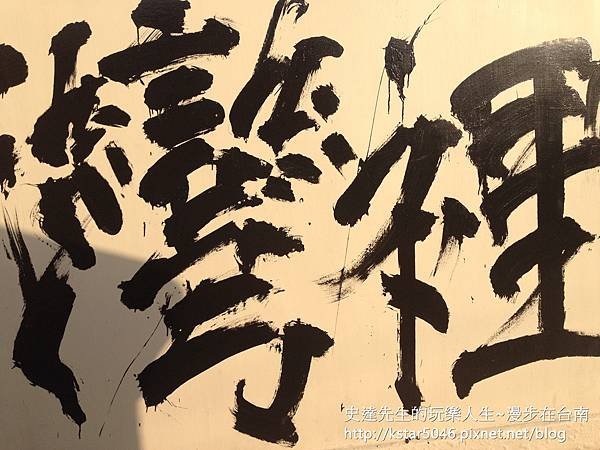 灣裡
史達先生的玩樂人生~漫步在台南
http://kstar5046.pixnet.net/blog